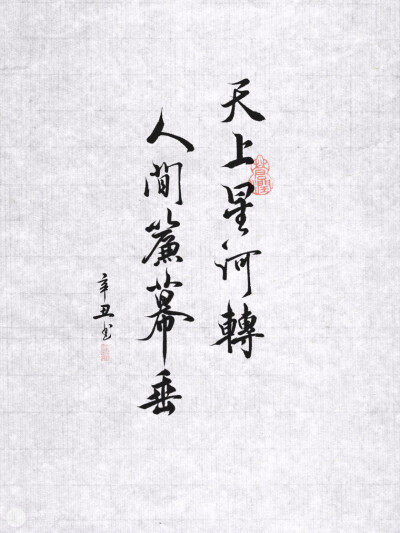 天上星河轉
人間簾幕垂
辛丑书